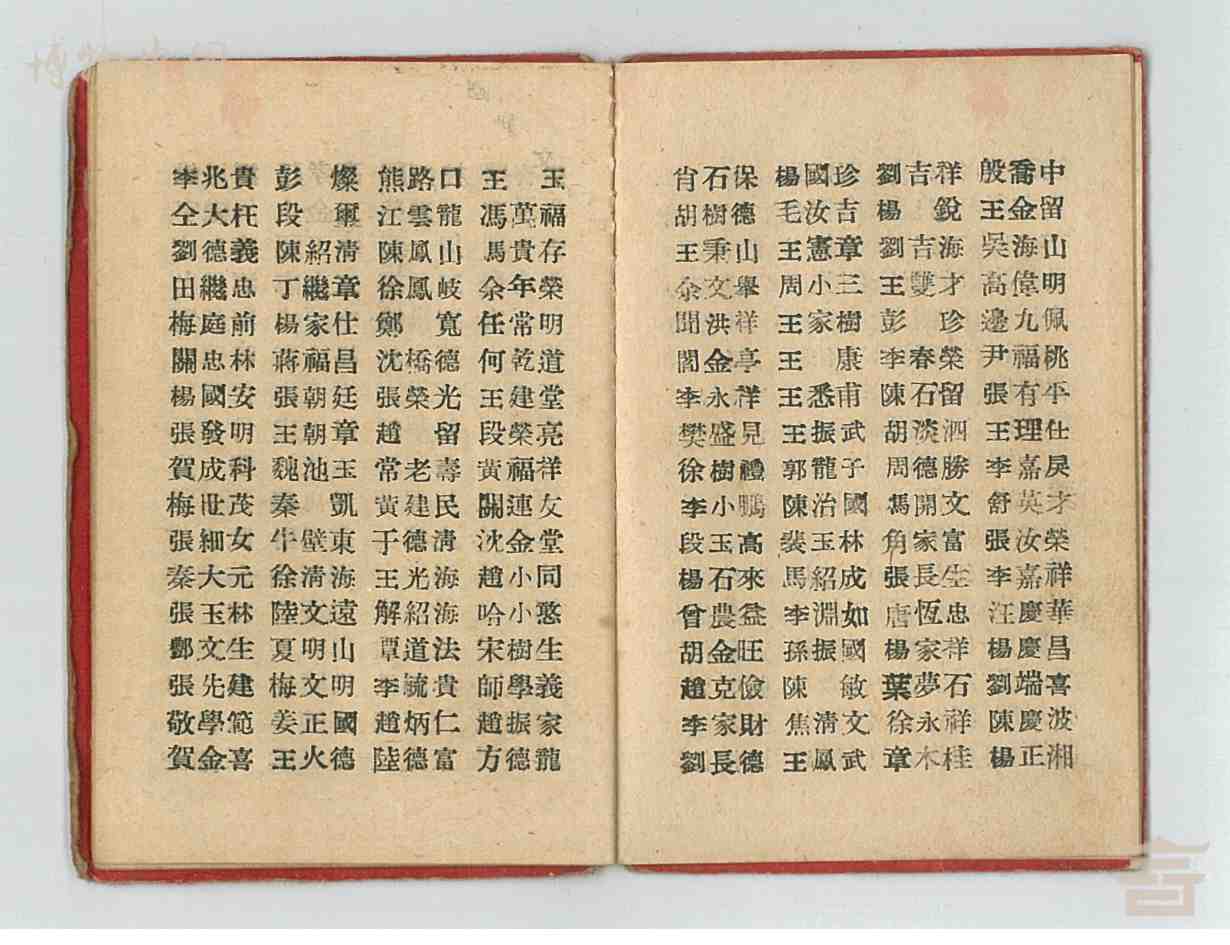 肖石保 楊國珍 劉吉祥 殷喬中
胡樹德 毛汝吉 楊 銳 王金留
王秉山 王憲章 劉吉海 吳海山
余文舉 周小三 王雙才 高偉明
聞洪祥 王家樹 彭 珍 邊九佩
閻金亭 王 康 李春榮 尹福桃
李永祥 王悉甫 陳石留 張有平
樊盛見 王振武 胡淡泗 王理仕
徐樹禮 郭龍子 周德勝 李嘉戾
李小鵬 陳治國 馮開文 舒英才
段玉高 裴玉林 角家富 張汝榮
楊石來 馬紹成 張長生 李嘉祥
曾農益 李淵如 唐恆忠 汪慶華
胡金旺 孫振國 楊家祥 楊慶昌
趙克儉 陳 敏 葉夢石 劉端喜
李家財 焦淸文 徐永祥 陳慶波
劉長德 王鳳武 章木桂 楊正湘
李兆貴 彭 燦 熊路口 王 玉
仝大枉 段 爾 江雲龍 馮萬福
劉德義 陳紹淸 陳鳳山 馬貴存
田繼忠 丁繼章 徐鳳岐 余年榮
梅庭前 楊家仕 鄭 寬 任常明
關忠林 蔣福昌 沈橋德 何乾道
楊國安 張朝廷 張榮光 王建堂
張發明 王朝章 趙 留 段榮亮
賀成科 魏池玉 常老壽 黃福祥
梅世茂 秦 凱 黃建民 關連友
張細女 牛壁東 于德淸 沈金堂
秦大元 徐淸海 王光海 趙小同
張玉林 陸文遠 解紹海 哈小憨
鄧文生 夏明山 覃道法 宋樹生
張先建 梅文明 李毓貴 師學義
敬學範 姜正國 趙炳仁 趙振家
賀金喜 王火德 陸德富 方德龍